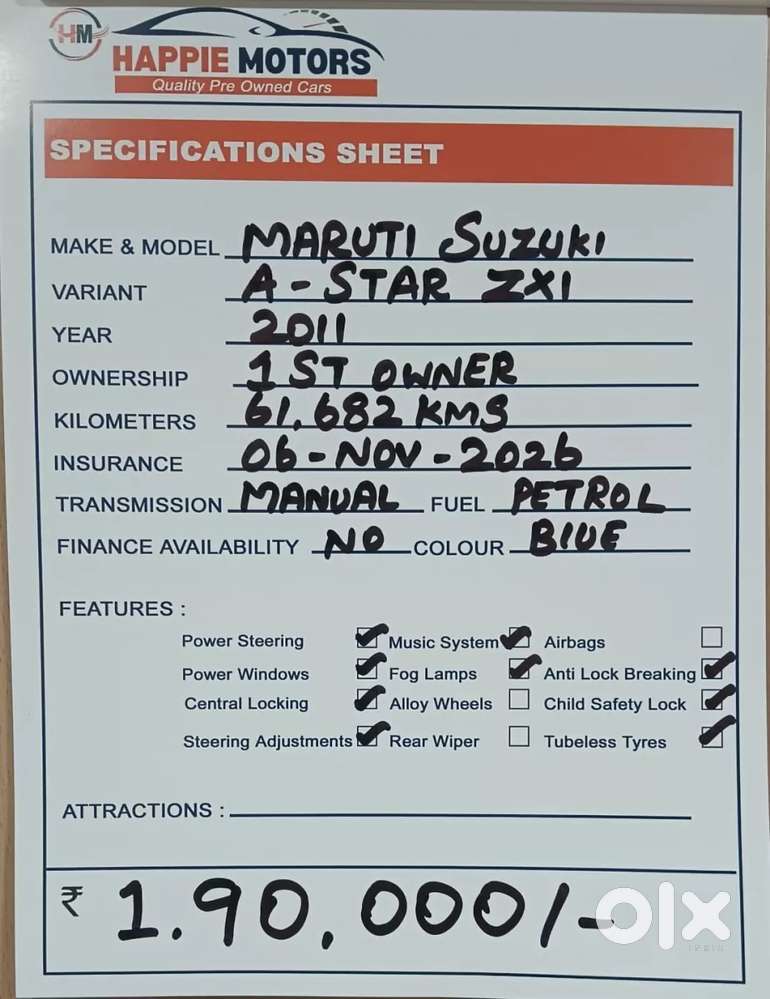 HM
HAPPIE MOTORS
Quality Pre Owned Cars
SPECIFICATIONS SHEET
MAKE & MODEL MARUTI SUZUKI
VARIANT A-STAR ZXI
YEAR 2011
OWNERSHIP 1ST OWNER
KILOMETERS 61,682 KMS
INSURANCE 06-NOV-2026
TRANSMISSION MANUAL FUEL PETROL
FINANCE AVAILABILITY NO COLOUR BLUE
FEATURES :
Power Steering Music System Airbags
Power Windows Fog Lamps Anti Lock Breaking
Central Locking Alloy Wheels Child Safety Lock
Steering Adjustments Rear Wiper Tubeless Tyres
ATTRACTIONS :
₹ 1.90,000/-
olx
INDIA